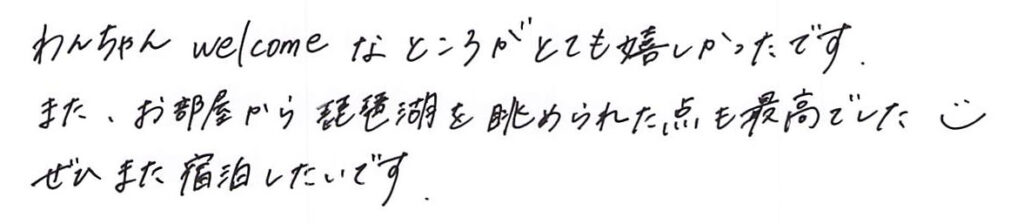 わんちゃん welcome なところがとても嬉しかったです.
また、お部屋から琵琶湖を眺められた点も最高でした
ぜひまた宿泊したいです.